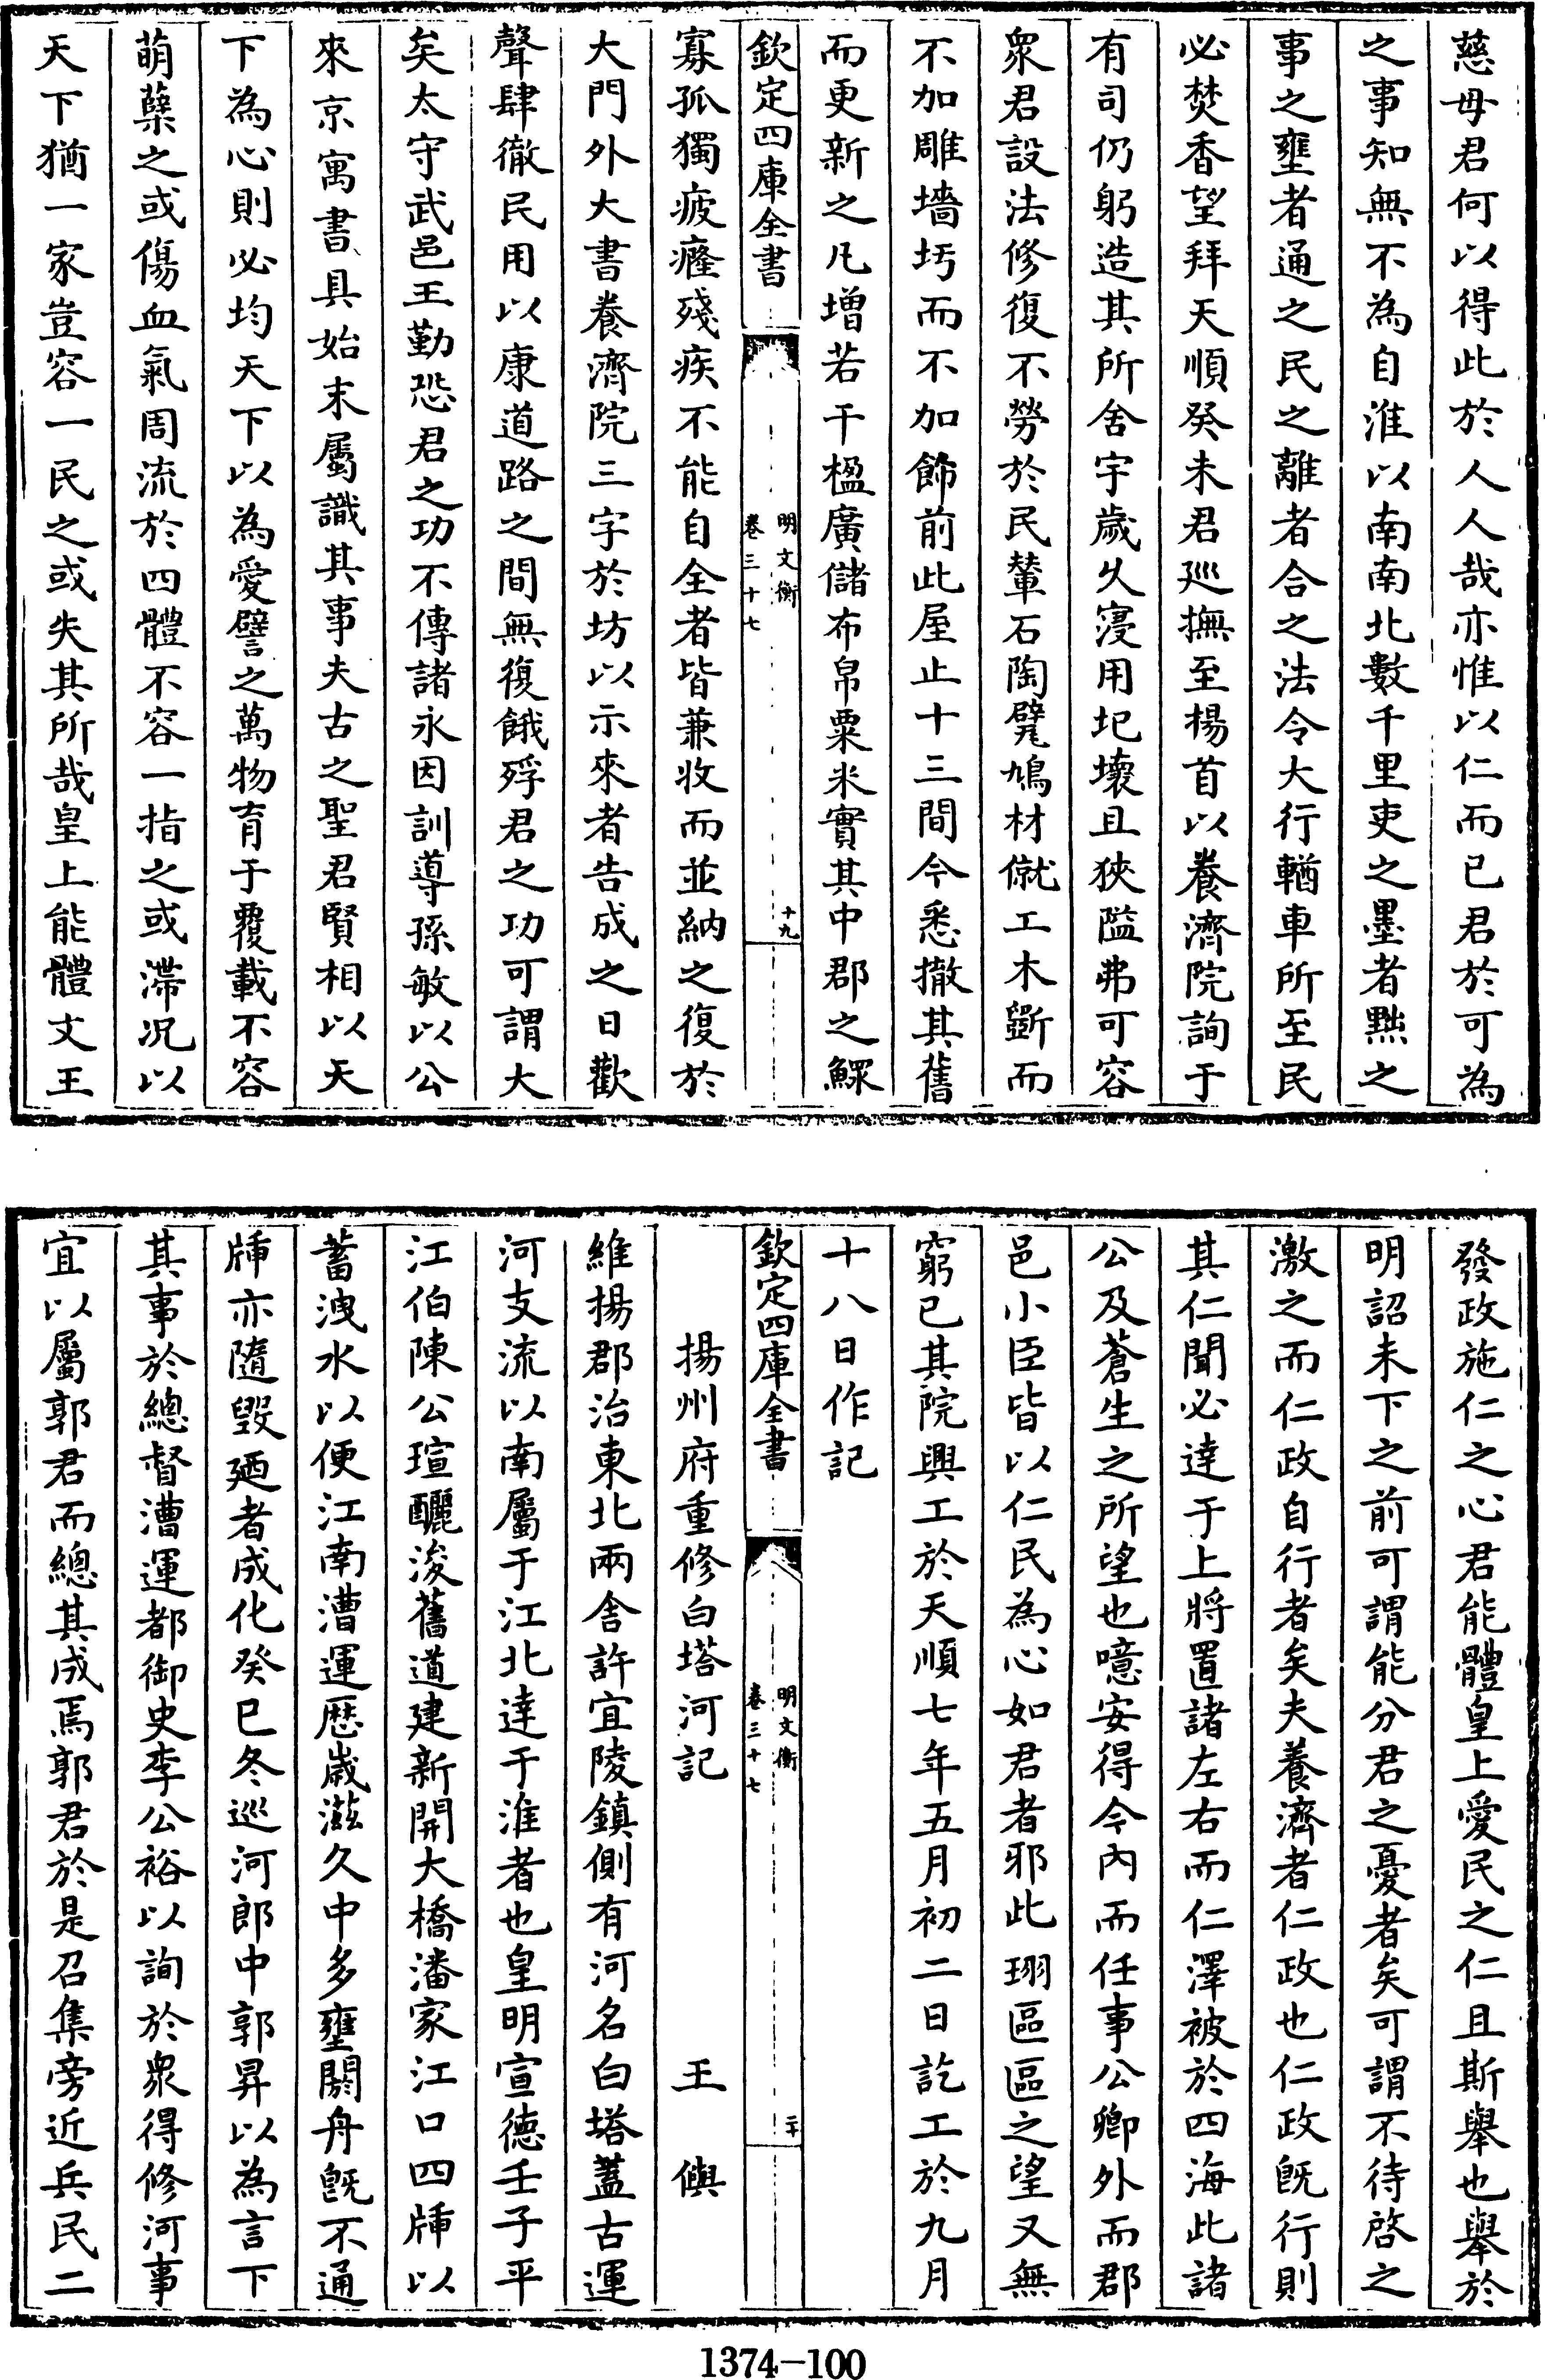 慈母君何以得此於人人哉亦惟以仁而已君於可為
之事知無不為自淮以南南北數千里吏之墨者黜之
事之壅者通之民之離者合之法令大行輶車所至民
必焚香望拜天順癸未君廵撫至楊首以養濟院詢于
有司仍躬造其所舍宇歲久寖用圮壞且狹隘弗可容
衆君設法修復不勞於民輦石陶甓鳩材僦工木斲而
不加雕墻圬而不加飾前此屋止十三間今悉撤其舊
而更新之凡增若干楹廣儲布帛粟米實其中郡之鰥
欽定四庫全書
明文衡
卷三十七
十九
寡孤獨疲癃殘疾不能自全者皆兼收而並納之復於
大門外大書養濟院三字於坊以示來者告成之日歡
聲肆徹民用以康道路之間無復餓殍君之功可謂大
矣太守武邑王勤恐君之功不傳諸永因訓導孫敏以公
來京寓書具始末屬識其事夫古之聖君賢相以天
下為心則必均天下以為愛譬之萬物育于覆載不容
萌蘖之或傷血氣周流於四體不容一指之或滯况以
天下猶一家豈容一民之或失其所哉皇上能體文王
發政施仁之心君能體皇上愛民之仁且斯舉也舉於
明詔未下之前可謂能分君之憂者矣可謂不待啓之
激之而仁政自行者矣夫養濟者仁政也仁政旣行則
其仁聞必達于上將置諸左右而仁澤被於四海此諸
公及蒼生之所望也噫安得今內而任事公卿外而郡
邑小臣皆以仁民為心如君者耶此珝區區之望又無
窮已其院興工於天順七年五月初二日訖工於九月
十八日作記
欽定四庫全書
明文衡
卷三十七
二十
揚州府重修白塔河記 王㒜
維揚郡治東北兩舍許宜陵鎮側有河名白塔蓋古運
河支流以南屬于江北達于淮者也皇明宣德壬子平
江伯陳公瑄釃浚舊道建新開大橋潘家江口四牐以
蓄洩水以便江南漕運歷歲滋久中多壅閼舟旣不通
牐亦隨毀廼者成化癸巳冬巡河郎中郭昇以為言下
其事於總督漕運都御史李公裕以詢於衆得修河事
宜以屬郭君而總其成焉郭君於是召集旁近兵民二
1374-100